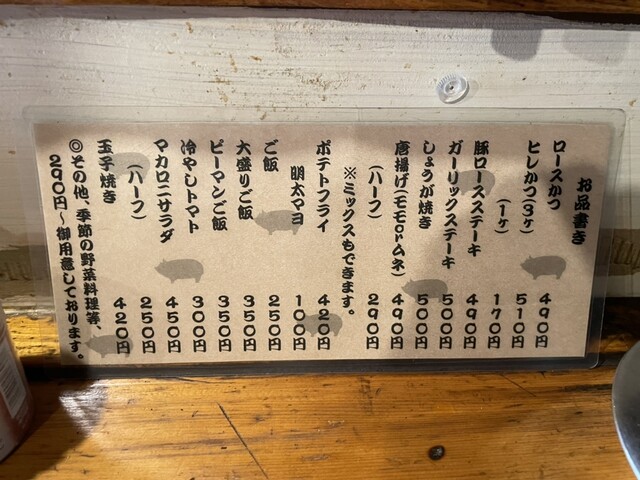 お品書き
ロースかつ 490円
ヒレかつ(3ヶ) 510円
(1ヶ) 170円
豚ロースステーキ 490円
ガーリックステーキ 500円
しょうが焼き 500円
唐揚げ(モモorムネ) 490円
(ハーフ) 290円
※ミックスもできます。
ポテトフライ 420円
明太マヨ 100円
ご飯 250円
大盛りご飯 350円
ピーマンご飯 350円
冷やしトマト 300円
マカロニサラダ 450円
(ハーフ) 250円
玉子焼き 420円
◎その他、季節の野菜料理等、
290円~御用意しております。